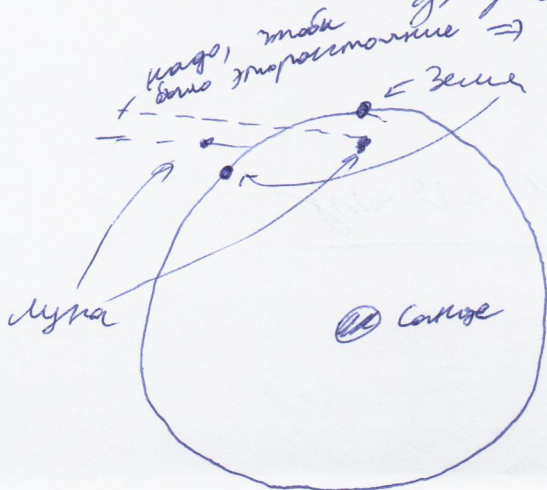 надо, чтобы
было это расстояние =>
Земля
Луна
Солнце